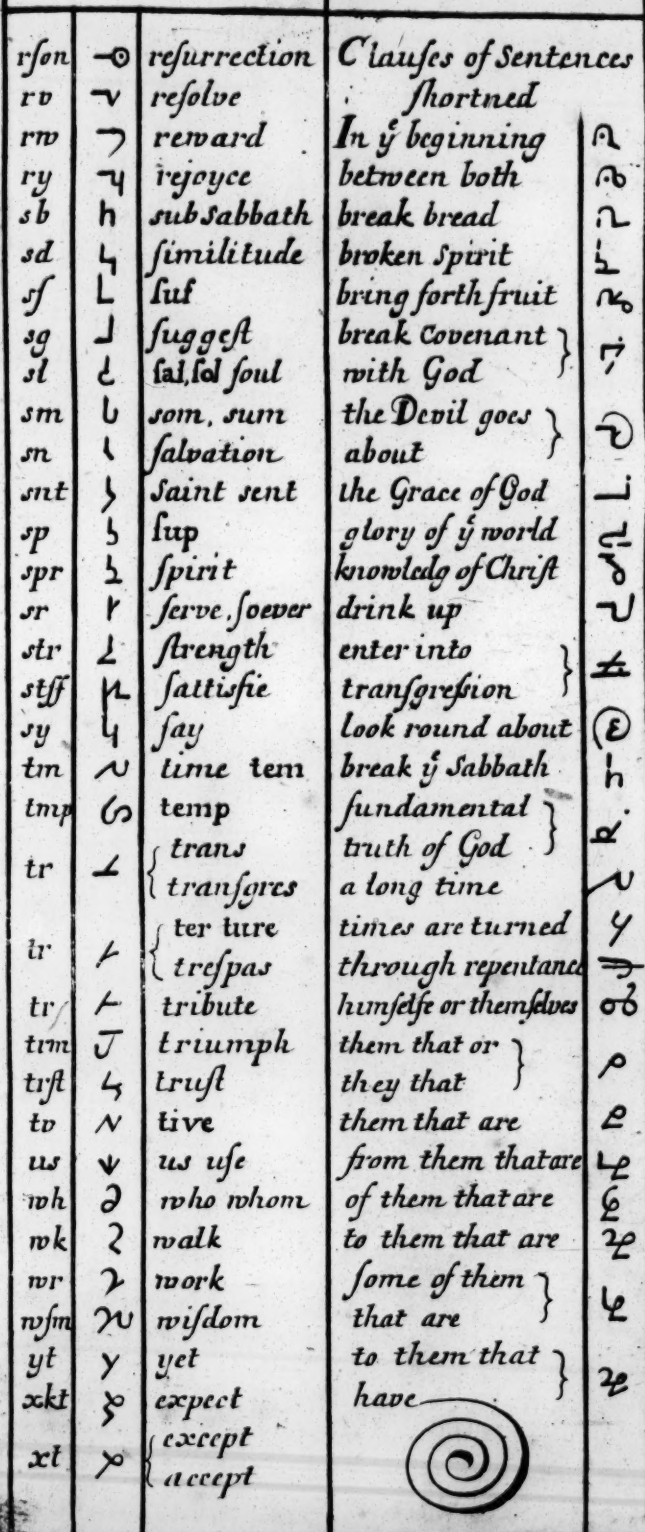 rſon reſurrection
rv reſolve
rw reward
ry rejoyce
sb sub Sabbath
sd ſimilitude
sf ſuf
sg ſuggeſt
sl ſal, ſol ſoul
sm som, sum
sn ſalvation
snt Saint sent
sp ſup
spr ſpirit
sr ſerve, ſoever
str ſtrength
stff ſattisfie
sy ſay
tm time tem
tmp temp
tr { trans
tranſgres
tr { ter ture
treſpas
tr tribute
trm triumph
trſt truſt
tv tive
us us uſe
wh who whom
wk walk
wr work
wſm wiſdom
yt yet
xkt expect
xt { except
accept
Clauſes of Sentences
ſhortned
In yͤ beginning
between both
break bread
broken Spirit
bring forth fruit
break Covenant }
with God
the Devil goes }
about
the Grace of God
glory of yͤ world
knowledg of Chriſt
drink up
enter into }
tranſgreſsion
look round about
break yͤ Sabbath
fundamental }
truth of God
a long time
times are turned
through repentance
himſelfe or themſelves
them that or }
they that
them that are
from them that are
of them that are
to them that are
ſome of them }
that are
to them that }
have